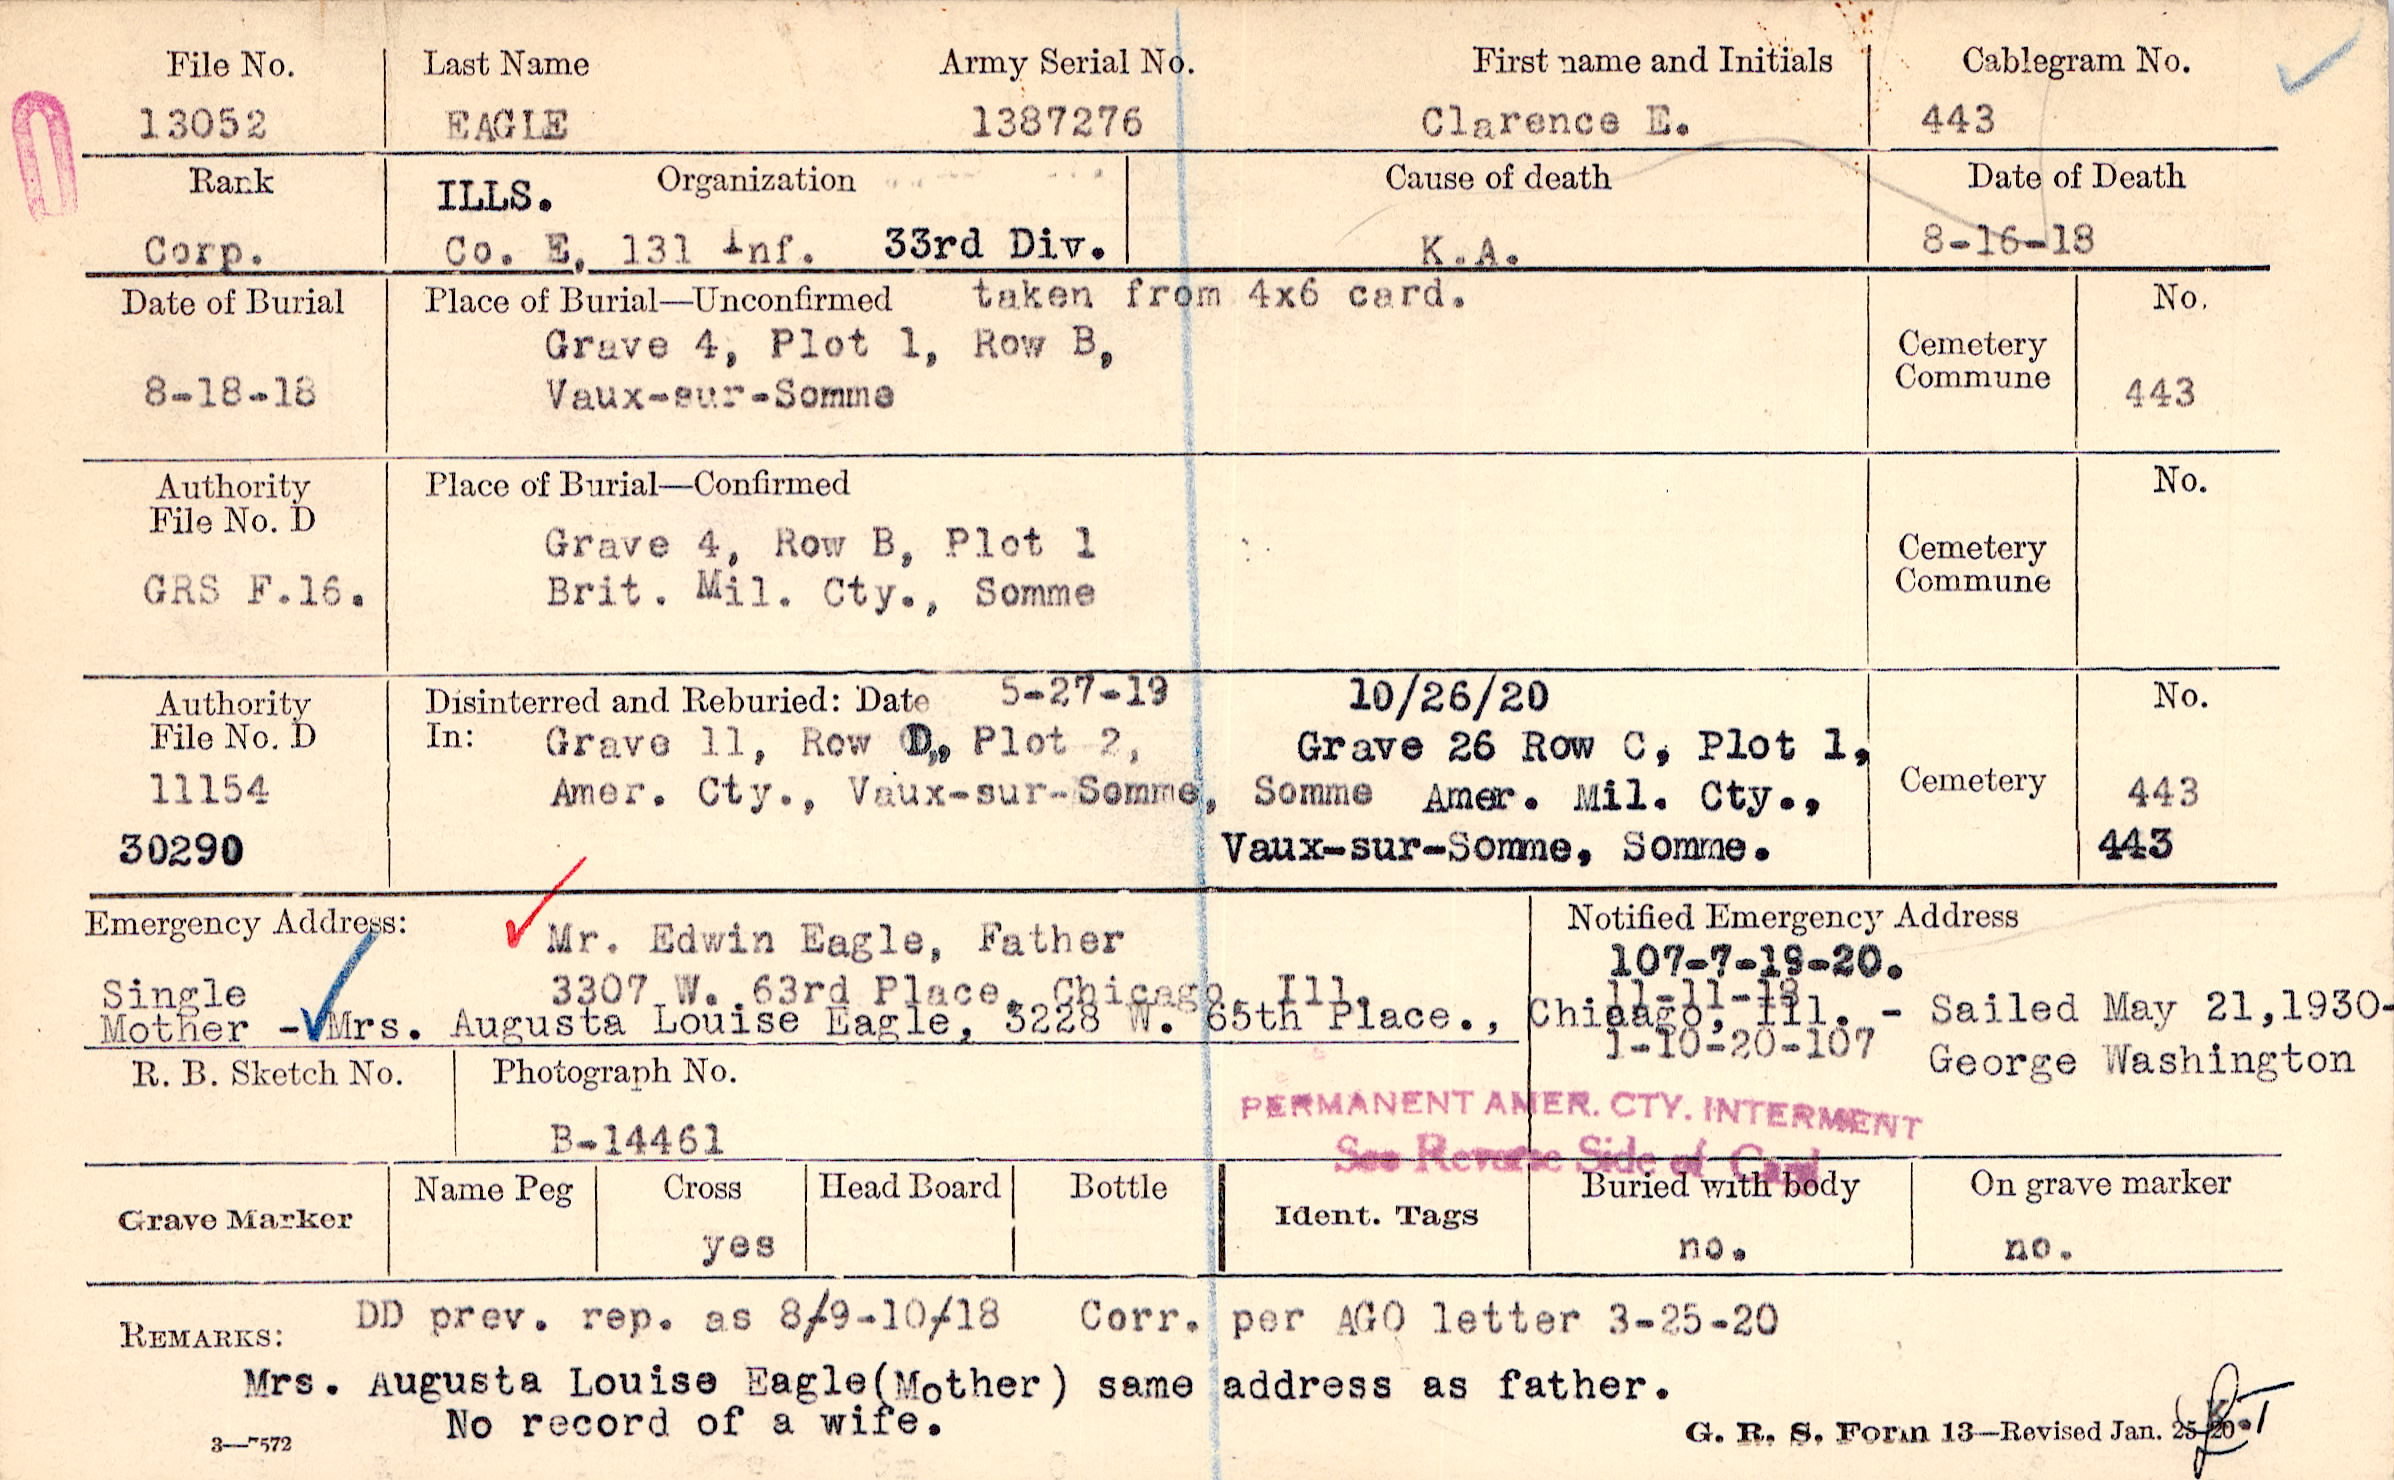 File No. Last Name Army Serial No. First name and Initials Cablegram No.
13052 EAGLE 1387276 Clarence E. 443
Rank Organization Cause of death Date of Death
ILLS.
Corp. Co. E, 131 Inf. 33rd Div. K.A. 8-16-18
Date of Burial Place of Burial—Unconfirmed taken from 4x6 card. No.
Grave 4, Plot 1, Row B, Cemetery
Commune
8-18-18 Vaux-sur-Somme 443
Authority Place of Burial—Confirmed No.
File No. D
Grave 4, Row B, Plot 1 Cemetery
Commune
GRS F.16. Brit. Mil. Cty., Somme
Authority Disinterred and Reburied: Date 5-27-19 10/26/20 No.
File No. D In: Grave 11, Row D, Plot 2, Grave 26 Row C, Plot 1,
11154 Amer. Cty., Vaux-sur-Somme, Somme Amer. Mil. Cty., Cemetery 443
30290 Vaux-sur-Somme, Somme. 443
Emergency Address: Mr. Edwin Eagle, Father Notified Emergency Address
107-7-19-20.
Single 3307 W. 63rd Place, Chicago, Ill. 11-11-18
Mother - Mrs. Augusta Louise Eagle, 3228 W. 65th Place., Chicago, Ill. - Sailed May 21,1930-
1-10-20-107 George Washington
R. B. Sketch No. Photograph No.
B-14461
PERMANENT AMER. CTY. INTERMENT
See Reverse Side of Card
Grave Marker Name Peg Cross Head Board Bottle Ident. Tags Buried with body On grave marker
yes no. no.
REMARKS: DD prev. rep. as 8/9-10/18 Corr. per AGO letter 3-25-20
Mrs. Augusta Louise Eagle(Mother) same address as father.
No record of a wife.
3—7572 G. R. S. Form 13—Revised Jan. 25-20